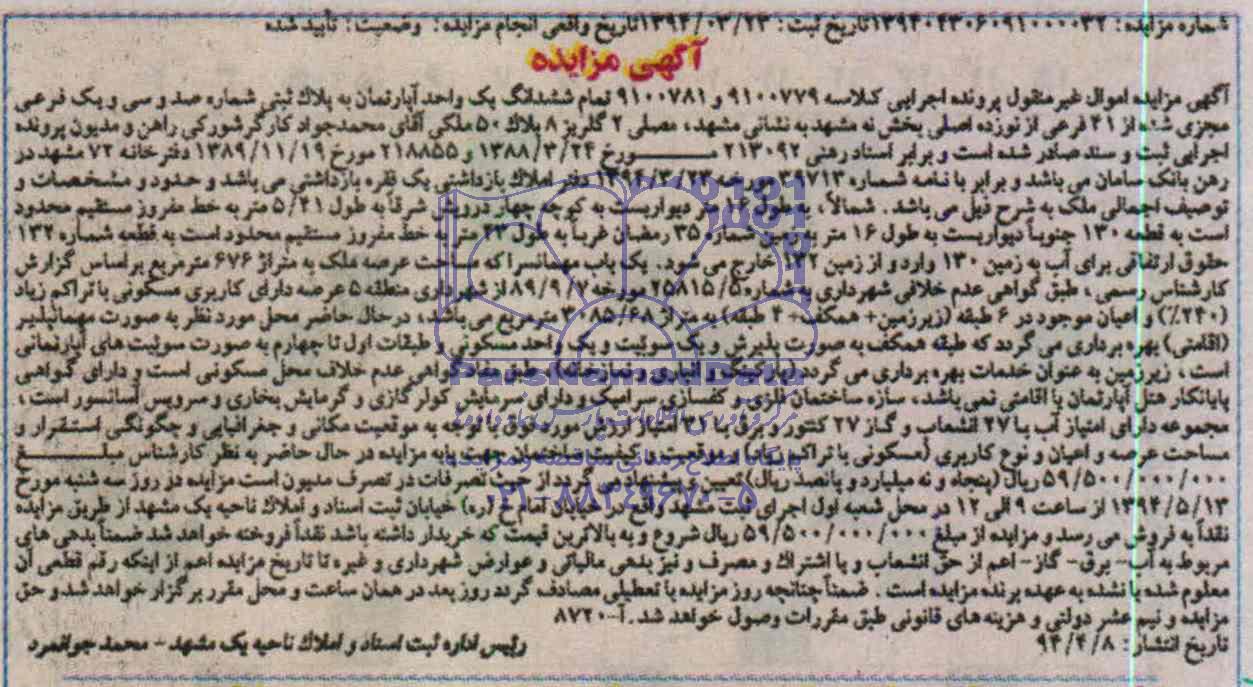 شماره مزایده: ۱۳۹۴۰۴۳۰۶۰۹۱۰۰۰۰۳۲ تاریخ ثبت: ۱۳۹۴/۰۳/۲۳ تاریخ واقعی انجام مزایده: وضعیت: تأیید شده
آگهی مزایده
آگهی مزایده اموال غیرمنقول پرونده اجرایی کلاسه ۹۱۰۰۷۷۹ و ۹۱۰۰۷۸۱ تمام ششدانگ یک واحد آپارتمان به پلاک ثبتی شماره صد و سی و یک فرعی
مجزی شده از ۴۱ فرعی از نوزده اصلی بخش نه مشهد به نشانی مشهد، مصلی ۲ گلریز ۸ پلاک ۵۰ ملکی آقای محمدجواد کارگرشورکی راهن و مدیون پرونده
اجرایی ثبت و سند صادر شده است و برابر اسناد رهنی ۲۱۳۰۹۲ مــــورخ ۱۳۸۸/۳/۲۴ و ۲۱۸۸۵۵ مورخ ۱۳۸۹/۱۱/۱۹ دفترخانه ۷۲ مشهد در
رهن بانک سامان می باشد و برابر با نامه شماره ۳۹۷۱۳ مورخه ۱۳۹۴/۳/۲۳ دفتر املاک بازداشتی یک فقره بازداشتی می باشد و حدود و مشخصات و
توصیف اجمالی ملک به شرح ذیل می باشد. شمالاً، به طول ۱۶ متر دیواریست به کوچه چهار درویش شرقاً به طول ۵/۴۱ متر به خط مفروز مستقیم محدود
است به قطعه ۱۳۰ جنوباً دیواریست به طول ۱۶ متر به زمین شماره ۳۵ رمضان غرباً به طول ۲۳ متر به خط مفروز مستقیم محدود است به قطعه شماره ۱۳۲
حقوق ارتفاقی برای آب به زمین ۱۳۰ وارد و از زمین ۱۳۲ خارج می شود. یک باب مهمانسرا که مساحت عرصه ملک به متراژ ۶۷۶ مترمربع براساس گزارش
کارشناس رسمی، طبق گواهی عدم خلافی شهرداری به شماره ۲۵۸۱۵/۵ مورخه ۸۹/۹/۷ از شهرداری منطقه ۵ عرصه دارای کاربری مسکونی با تراکم زیاد
(۲۴۰٪) و اعیان موجود در ۶ طبقه (زیرزمین+ همکف+ ۴ طبقه) به متراژ ۳۰۸۵/۶۸ مترمربع می باشد، در حال حاضر محل مورد نظر به صورت مهمانپذیر
(اقامتی) بهره برداری می گردد که طبقه همکف به صورت پذیرش و یک سوئیت و یک واحد مسکونی و طبقات اول تا چهارم به صورت سوئیت های آپارتمانی
است، زیرزمین به عنوان خدمات بهره برداری می گردد (پارکینگ و انباری و نمازخانه)، طبق مفاد گواهی عدم خلاف محل مسکونی است و دارای گواهی
پایانکار هتل آپارتمان یا اقامتی نمی باشد، سازه ساختمان فلزی و کفسازی سرامیک و دارای سرمایش کولر گازی و گرمایش بخاری و سرویس آسانسور است،
مجموعه دارای امتیاز آب با ۲۷ انشعاب و گاز ۲۷ کنتور و برق با ۳۱ امتیاز ارزش مورد فوق با توجه به موقعیت مکانی و جغرافیایی و چگونگی استقرار و
مساحت عرصه و اعیان و نوع کاربری (مسکونی با تراکم زیاد) و قدمت و کیفیت ساختمان جهت پایه مزایده در حال حاضر به نظر کارشناس مبلــــغ
۵۹/۵۰۰/۰۰۰/۰۰۰ ریال (پنجاه و نه میلیارد و پانصد ریال) تعیین و پیشنهاد می گردد از حیث تصرفات در تصرف مدیون است مزایده در روز سه شنبه مورخ
۱۳۹۴/۵/۱۳ از ساعت ۹ الی ۱۲ در محل شعبه اول اجرای ثبت مشهد واقع در خیابان امام خ (ره) خیابان ثبت اسناد و املاک ناحیه یک مشهد از طریق مزایده
نقداً به فروش می رسد و مزایده از مبلغ ۵۹/۵۰۰/۰۰۰/۰۰۰ ریال شروع و به بالاترین قیمت که خریدار داشته باشد نقداً فروخته خواهد شد ضمناً بدهی های
مربوط به آب- برق- گاز- اعم از حق انشعاب و یا اشتراک و مصرف و نیز بدهی مالیاتی و عوارض شهرداری و غیره تا تاریخ مزایده اعم از اینکه رقم قطعی آن
معلوم شده یا نشده به عهده برنده مزایده است. ضمناً چنانچه روز مزایده با تعطیلی مصادف گردد روز بعد در همان ساعت و محل مقرر برگزار خواهد شد و حق
مزایده و نیم عشر دولتی و هزینه های قانونی طبق مقررات وصول خواهد شد. آ-۸۷۲۰
تاریخ انتشار: ۹۴/۴/۸ رئیس اداره ثبت اسناد و املاک ناحیه یک مشهد - محمد جوانمرد
ParsNamadData
پایگاه اطلاع رسانی مناقصه و مزایده
۰۲۱-۸۸۳۴۹۶۷۰-۵